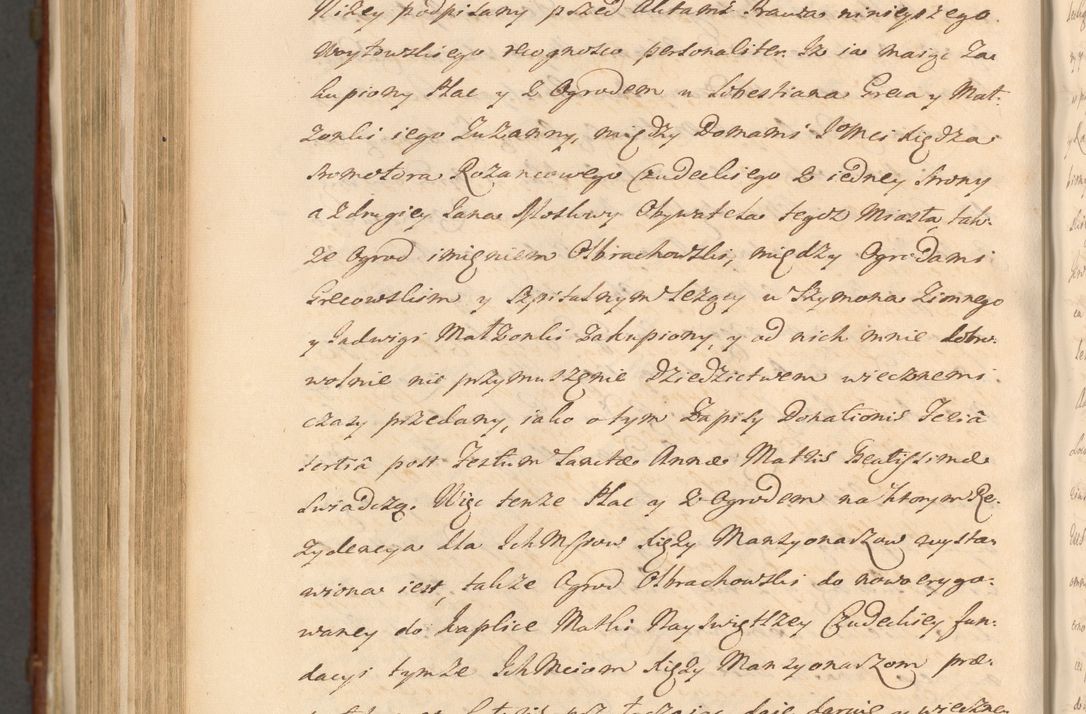 Niżey podpisany przed Aktami Prawa ninieyszego
Woytowskiego recognosco personaliter. Iż ia maiąc Za
kupiony Plac y z Ogrodem u Sebestiana Greca y Mał-
żonki iego Zuzanny, między Domami JoMci Xiędza
Promotora Rożancowego Czudeckiego z iedney strony
a z drugiey Jana Moskwy Obywatela tegoż Miasta, tak-
że Ogrod imieniem Olbrachowski, między Ogrodami
Grecowskim y Szpitalnym leżący u Szymona Zimnego
y Jadwigi Małżonki zakupiony, y od nich mnie dobro-
wolnie nie przymuszenie Dziedzictwem wiecznemi
czasy przedany, iako o tym Zapisy Donationis Feria
tertiâ post Festum Sanctae Annae Matris Beatissimae
swiadczą. Więc tenże Plac y z Ogrodem na ktorym Re-
zydencya dla IchMsciow Xięży Mansyonarzow wysta-
wiona iest, także Ogrod Olbrachowski do nowo erygo-
waney do Kaplice Matki Nayswiętszey Czudeckiey fun-
dacyi tymże IchMciom Xięży Mansyonarzom præ-
daię daruię y wiecznie